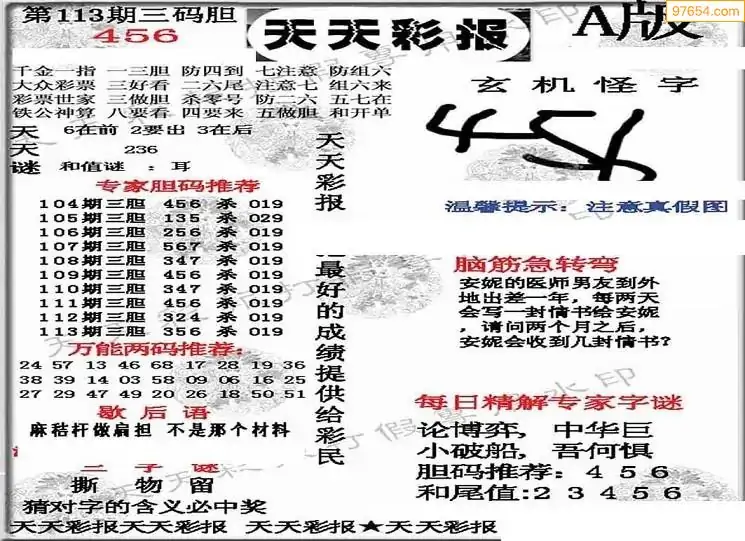 第113期三码胆
456
天天彩报
A版
97654.com
千金一指 一三胆 防四到 七注意 防组六
大众彩票 三好看 二六尾 注意七 组六来
彩票世家 三做胆 杀零号 防二六 五七在
铁公神算 八要看 四要来 五做胆 和开单
天 6在前 2要出 3在后
天 236
谜 和值谜 : 耳
专家胆码推荐
104期三胆 456 杀 019
105期三胆 135 杀 029
106期三胆 256 杀 019
107期三胆 567 杀 019
108期三胆 347 杀 019
109期三胆 456 杀 019
110期三胆 347 杀 019
111期三胆 456 杀 019
112期三胆 324 杀 019
113期三胆 356 杀 019
万能两码推荐:
24 57 13 46 68 17 28 19 36
38 39 14 03 58 09 06 16 25
27 29 47 49 20 26 18 50 51
歇后语
麻秸杆做扁担 不是那个材料
二字谜
撕 物 留
猜对字的含义必中奖
天天彩报
最好的成绩提供给彩民
玄机怪字
温馨提示: 注意真假图
脑筋急转弯
安妮的医师男友到外
地出差一年，每两天
会写一封情书给安妮
，请问两个月之后，
安妮会收到几封情书？
每日精解专家字谜
论博弈, 中华巨
小破船, 吾何惧
胆码推荐: 4 5 6
和尾值:2 3 4 5 6
天天彩报天天彩报 天天彩报★天天彩报